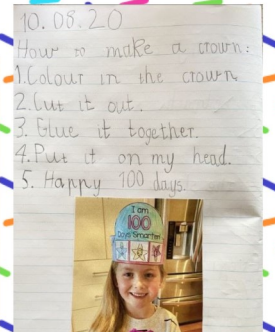 10.08.20
How to make a crown:
1. Colour in the crown.
2. Cut it out.
3. Glue it together.
4. Put it on my head.
5. Happy 100 days.
I am
100
Days Smarter!